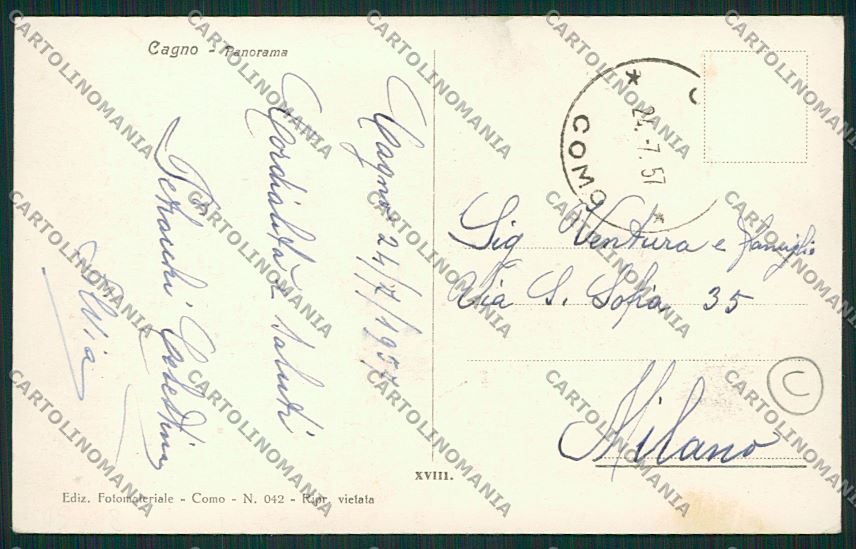 Cagno - Panorama
Cagno 24/7/1957
Cordialità e saluti
Silvia
COMO
24.-7.57
Sig Ventura e famiglia
Via S. Sofia, 35
Milano
U
XVIII.
Ediz. Fotomateriale - Como - N. 042 - Ripr. vietata
CARTOLINOMANIA